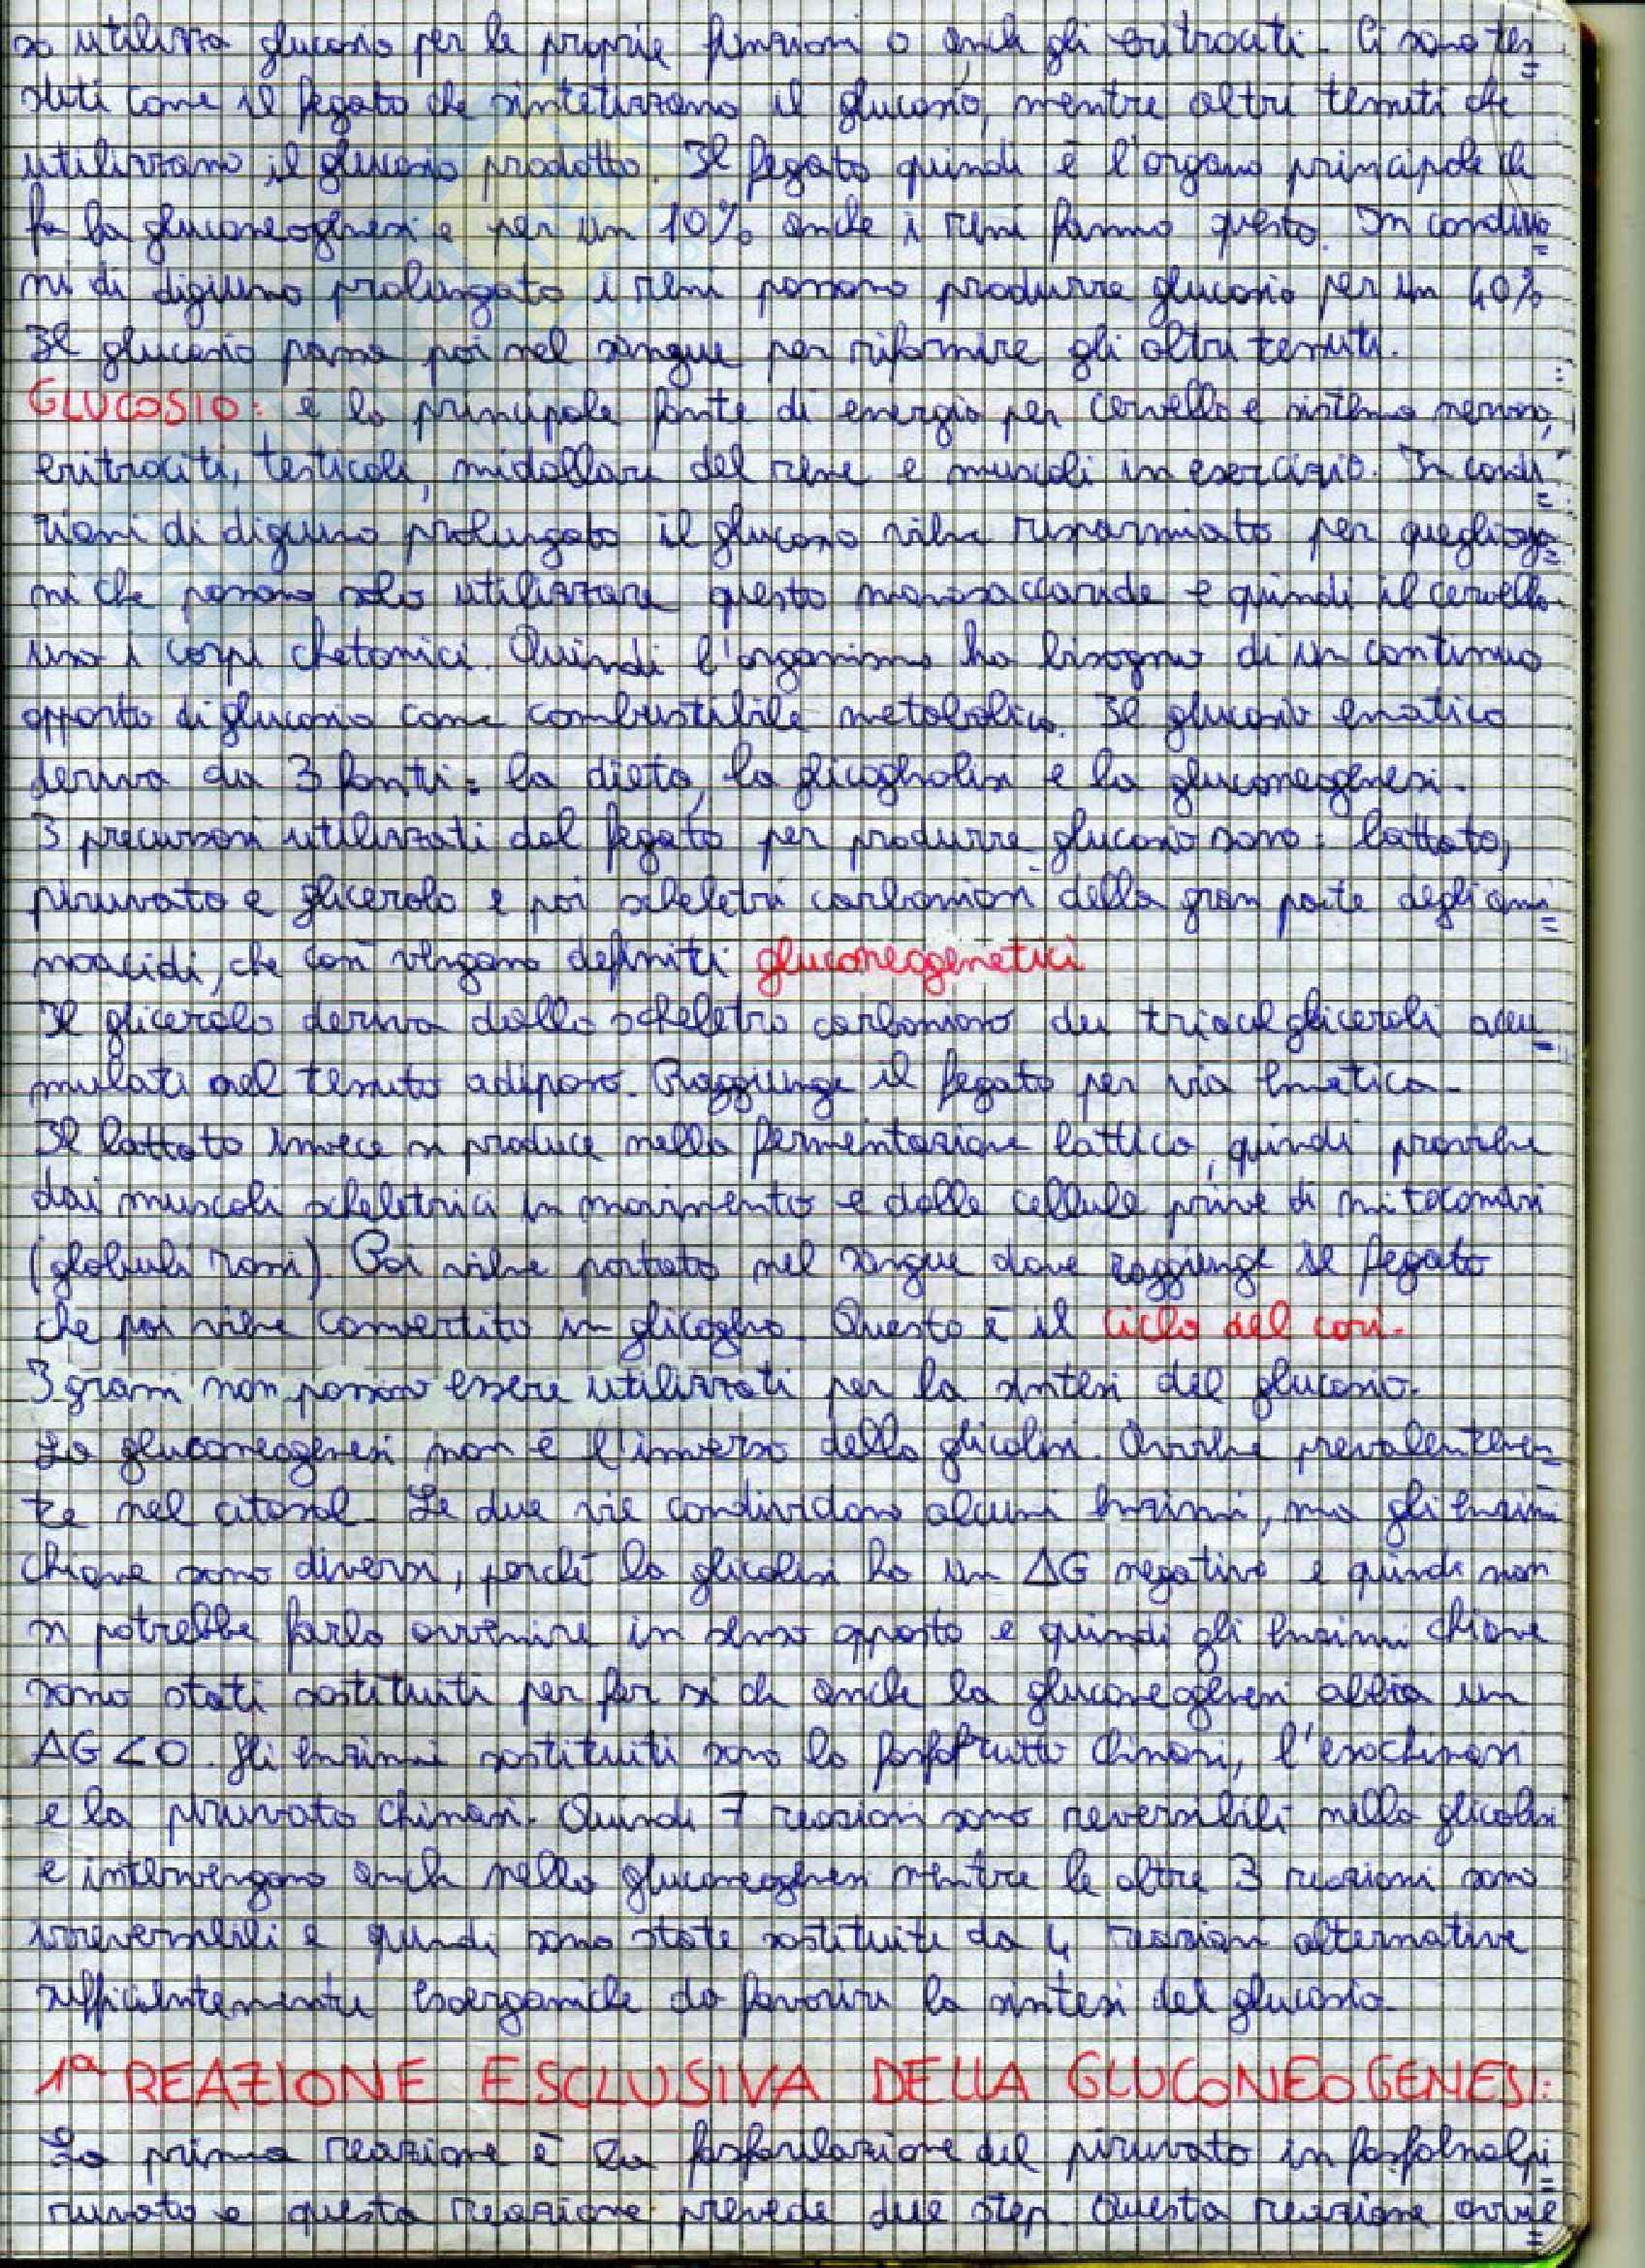 so utilizza glucosio per le proprie funzioni o anche gli eritrociti. Ci sono tes=
suti come il fegato che sintetizzano il glucosio, mentre altri tessuti che
utilizzano il glucosio prodotto. Il fegato quindi è l'organo principale che
fa la gluconeogenesi e per un 10% anche i reni fanno questo. In condizio=
ni di digiuno prolungato i reni possono produrre glucosio per un 40%
Il glucosio passa poi nel sangue per rifornire gli altri tessuti.
GLUCOSIO: è la principale fonte di energia per cervello e sistema nervoso,
eritrociti, testicoli, midollare del rene e muscoli in esercizio. In condi=
zioni di digiuno prolungato il glucosio viene risparmiato per quegli orga=
ni che possono solo utilizzare questo monosaccaride e quindi il cervello
usa i corpi chetonici. Quindi l'organismo ha bisogno di un continuo
apporto di glucosio come combustibile metabolico. Il glucosio ematico
deriva da 3 fonti: la dieta, la glicogenolisi e la gluconeogenesi.
I precursori utilizzati dal fegato per produrre glucosio sono: lattato,
piruvato e glicerolo e poi scheletri carboniosi della gran parte degli ami=
noacidi, che così vengono definiti gluconeogenetici
Il glicerolo deriva dallo scheletro carbonioso dei triacilgliceroli accu=
mulati nel tessuto adiposo. Raggiunge il fegato per via ematica.
Il lattato invece si produce nella fermentazione lattica, quindi proviene
dai muscoli scheletrici in movimento e dalle cellule prive di mitocondri
(globuli rossi). Poi viene portato nel sangue dove raggiunge il fegato
che poi viene convertito in glicogeno. Questo è il ciclo del cori.
I grassi non possono essere utilizzati per la sintesi del glucosio.
La gluconeogenesi non è l'inverso della glicolisi. Avviene prevalentemen=
te nel citosol. Le due vie condividono alcuni enzimi, ma gli enzimi
chiave sono diversi, perchè la glicolisi ha un ΔG negativo e quindi non
si potrebbe farla avvenire in senso opposto e quindi gli enzimi chiave
sono stati sostituiti per far si che anche la gluconeogenesi abbia un
ΔG<0. Gli enzimi sostituiti sono la fosfofrutto chinasi, l'esochinasi
e la piruvato chinasi. Quindi 7 reazioni sono reversibili nella glicolisi
e intervengono anche nella gluconeogenesi mentre le altre 3 reazioni sono
irreversibili e quindi sono state sostituite da 4 reazioni alternative
sufficientemente esoergoniche da favorire la sintesi del glucosio.
1ª REAZIONE ESCLUSIVA DELLA GLUCONEOGENESI:
La prima reazione è la fosforilazione del piruvato in fosfoenolpi=
ruvato e questa reazione prevede due step. Questa reazione avvie=